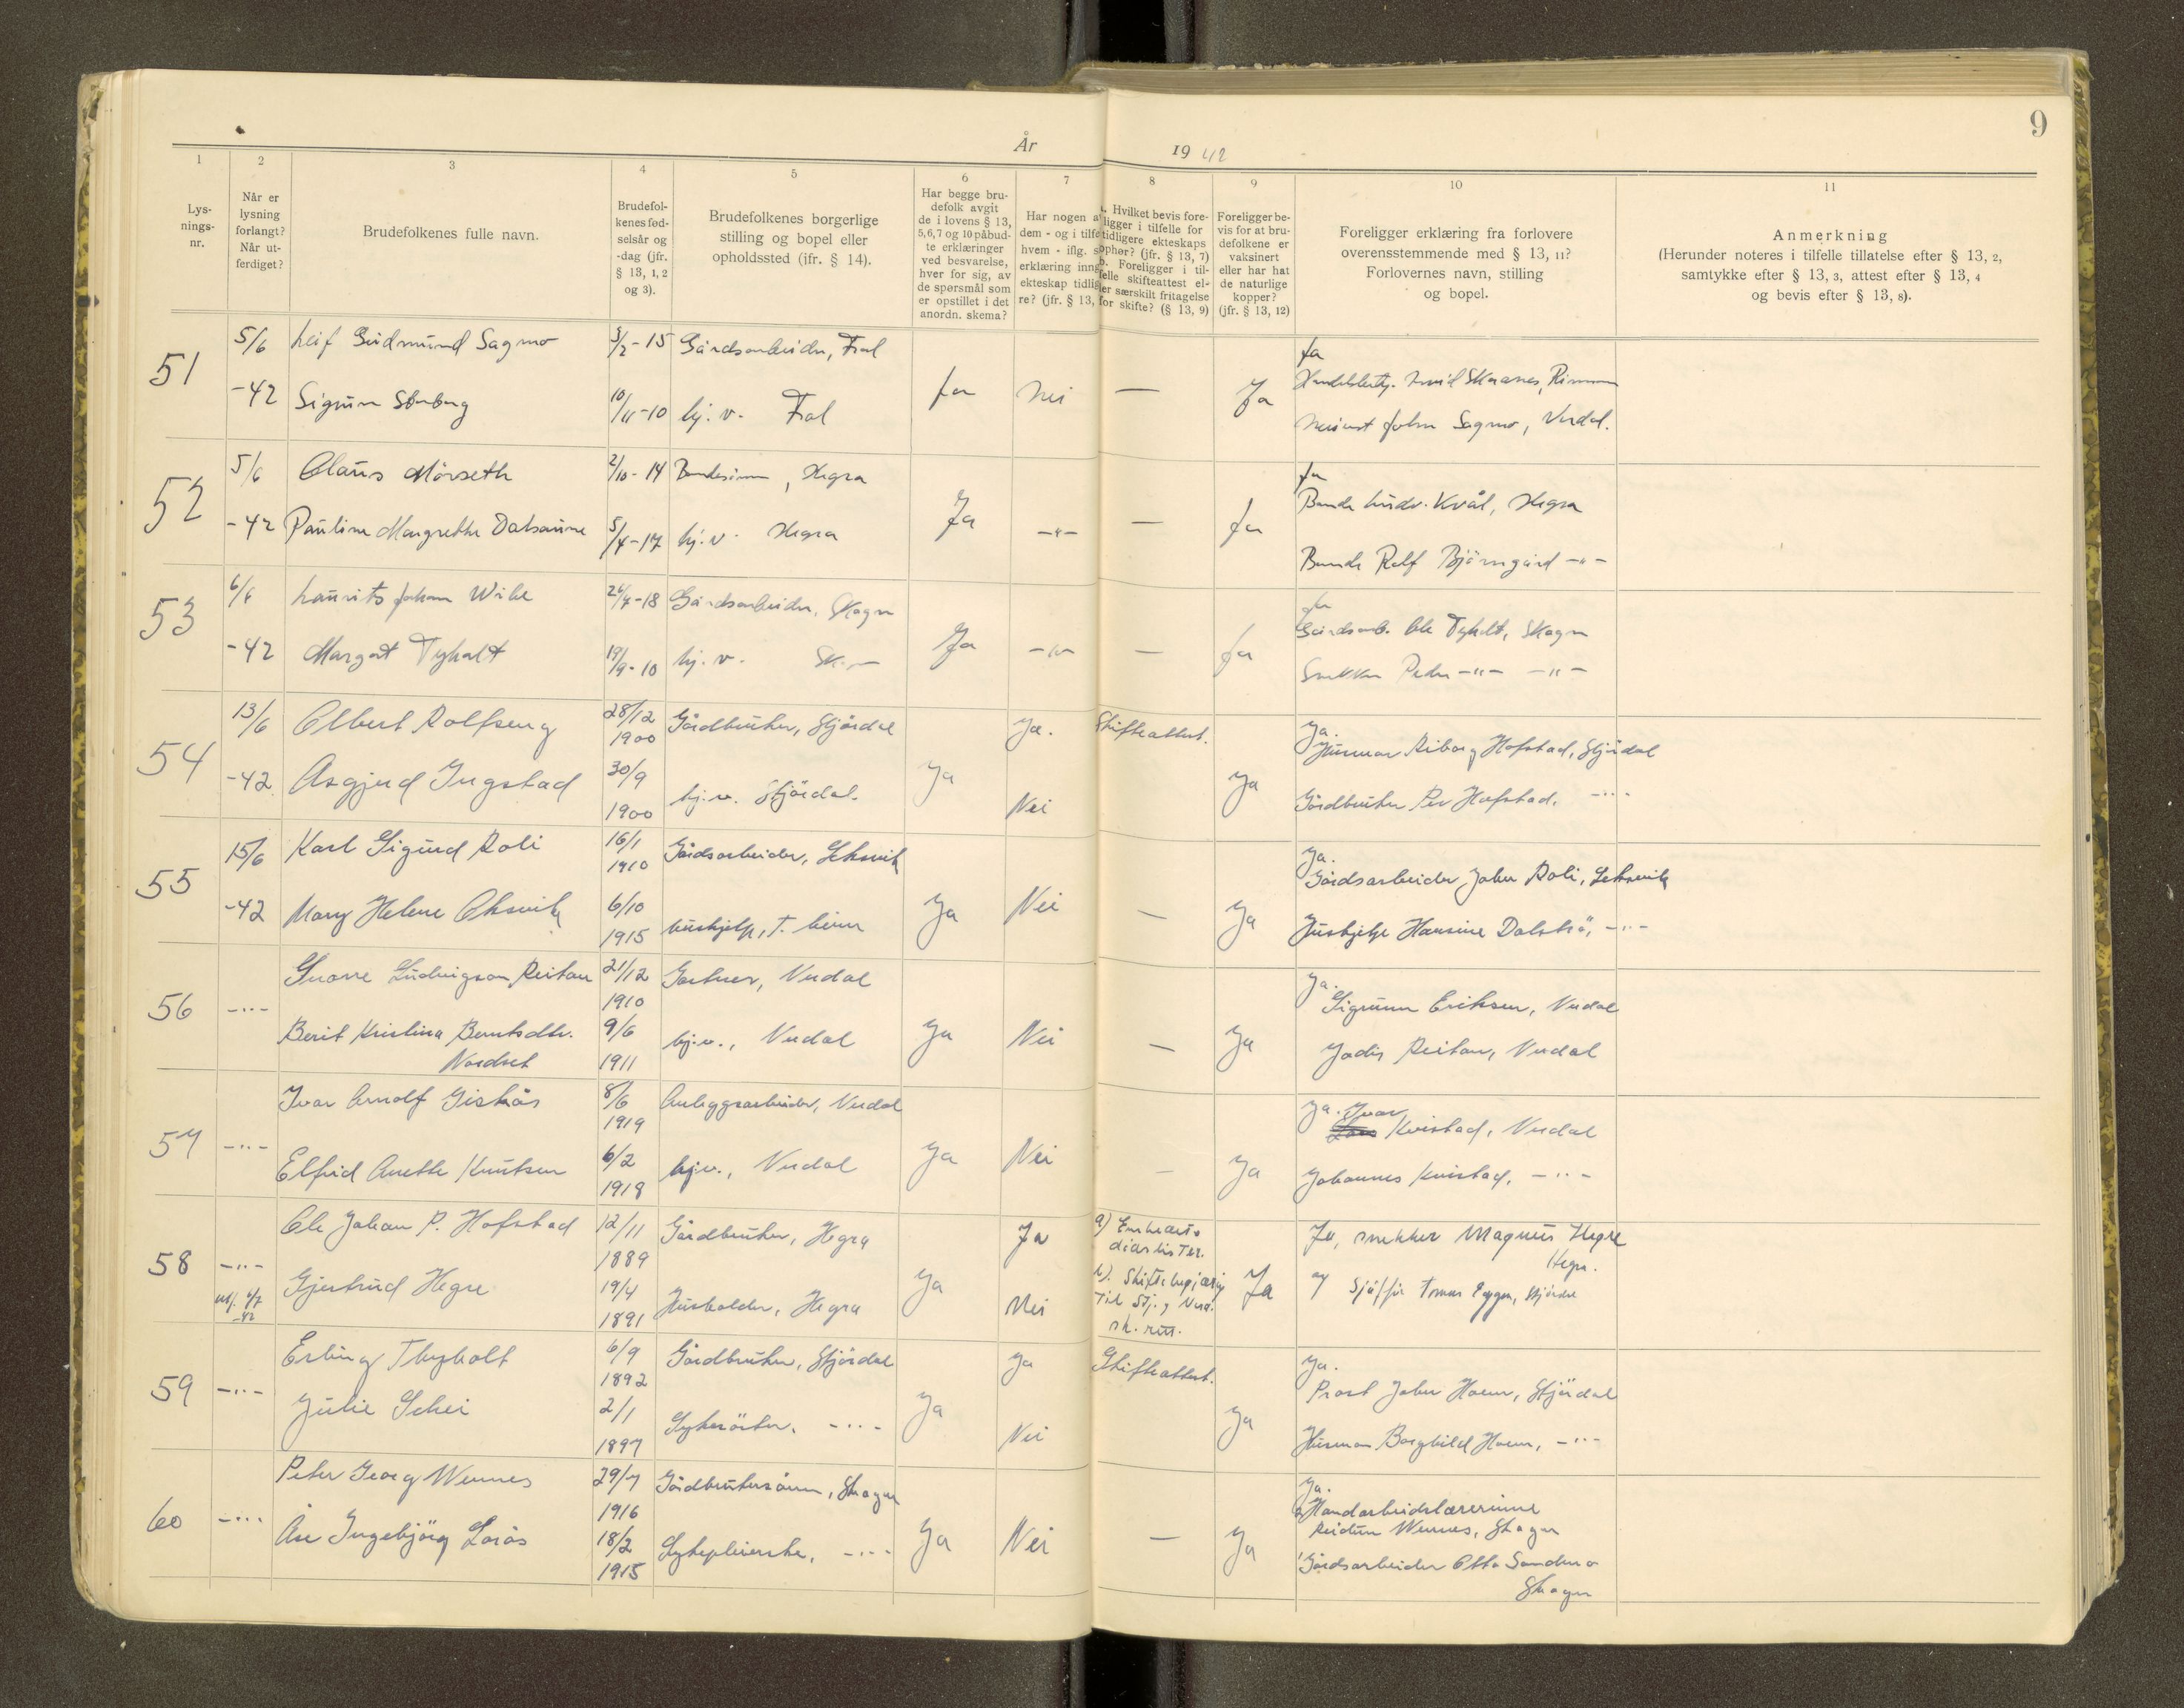 9
År 1942
1 2 3 4 5 6 7 8 9 10 11
Lys-
nings-
nr.
Når er
lysning
forlangt?
Når ut-
ferdiget?
Brudefolkenes fulle navn.
Brudefol-
kenes fød-
selsår og
-dag (jfr.
§ 13, 1, 2
og 3).
Brudefolkenes borgerlige
stilling og bopel eller
opholdssted (ifr. § 14).
Har begge bru-
defolk avgit
de i lovens § 13,
5,6,7 og 10 påbud-
te erklæringer
ved besvarelse,
hver for sig, av
de spørsmål som
er opstillet i det
anordn. skema?
Har nogen a
dem - og i tilfe
hvem - iflg. s
erklæring inng
ekteskap tidlig
re? (jfr. § 13,
. Hvilket bevis fore-
ligger i tilfelle for
tidligere ekteskaps
ophør? (jfr. § 13, 7)
b. Foreligger i til-
felle skifteattest el-
er særskilt fritagelse
for skifte? (§ 13, 9)
Foreligger be-
vis for at bru-
defolkene er
vaksinert
eller har hat
de naturlige
kopper?
(jfr. § 13, 12)
Foreligger erklæring fra forlovere
overensstemmende med § 13, 11?
Forlovernes navn, stilling
og bopel.
Anmerkning
(Herunder noteres i tilfelle tillatelse efter § 13, 2,
samtykke efter § 13, 3, attest efter § 13, 4
og bevis efter § 13, 8).
51 5/6 Leif Gudmund Sagmo 3/2-15 Gårdsarbeider, Frol Ja
-42 Sigrun 10/11-10 hj.v. Frol Ja Nei — Ja
John Sagmo, Verdal.
52 5/6 Olaus Mörseth 2/10-14 Bondesönn, Hegra Ja
Bonde Ludv. Kvål, Hegra
-42 Pauline Margrethe Dalsaune 5/4-17 hj.v. Hegra Ja -"- — Ja
Bonde Rolf Bjørngård -"-
53 6/6 Laurits Johan Wibe 26/7-18 Gårdsarbeider, Skogn Ja
Gårdsarb. Ole Tyholt, Skogn
-42 Margot Tyholt 19/9-10 hj.v. Sk.— Ja -"- — Ja
Snekker Peder -"- -"-
54 13/6 Albert Rolfseng 28/12 1900 Gårdbruker, Stjørdal Ja. Skifteattest. Ja.
Husmor Hofstad, Stjördal
-42 Asgjerd Ingstad 30/9 1900 hj.v. Stjördal. Ja Nei Ja
Gårdbruker Per Hofstad, -"-
55 15/6 Karl Sigurd Roli 16/1 1910 Gårdsarbeider, Leksvik Ja.
Gårdsarbeider John Roli, Leksvik
-42 Mary Helene Oksvik 6/10 1915 hushjelp, Ja Nei — Ja
Hushjelp Hansine Dalslrö, -"-
56 -"- Snorre Ludvigson Reitan 21/12 1910 Gartner, Verdal Ja.
Sigrunn Eriksen, Verdal
Berit Kristina Berntsdtr.
Nordset 9/6 1911 hj.v., Verdal Ja Nei — Ja
Jodis Reitan, Verdal
57 -"- Ivar Arnolf Giskås 8/6 1919 Anleggsarbeider, Verdal Ja. Ivar
Kvistad, Verdal
Elfrid Anette Knutsen 6/2 1918 hj.v., Verdal Ja Nei — Ja
Johannes Kvistad, -"-
58 -"- Ole Johan P. Hofstad 12/11 1889 Gårdbruker, Hegra Ja a)
Ja, snekker Magnus Hegre
Hegra.
utf. 4/7
-42
Gjertrud Hegre 19/4 1891 Husholder, Hegra Ja Nei b). Skiftebegjæring
til Stj. og Verd.
sk. rett. Ja
og Sjåfør Tomas Eggen, Stjørdal
59 -"- Erling Thyholt 6/9 1892 Gårdbruker, Stjördal Ja Skifteattest. Ja.
Prost John Hoem, Stjördal
Julie Schei 2/1 1897 Sykesöster, -"- Ja Nei Ja
Husmor Borghild Hoem, -"-
60 -"- Peter Georg Wennes 29/7 1916 Gårdbrukersönn, Skogn Ja.
Handarbeidslærerinne
Reidun Wennes, Skogn
Åse Ingebjörg Lorås 18/2 1915 Sykepleierske, -"- Ja Nei — Ja
Gårdsarbeider Otto Sandmo
Skogn